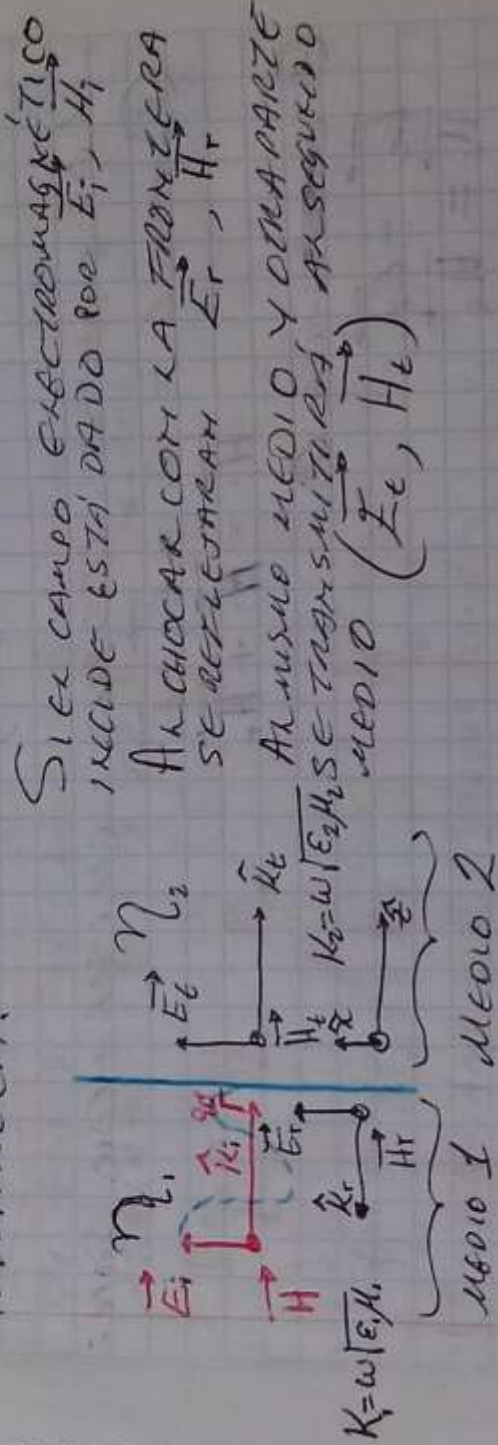 SI EL CAMPO ELECTROMAGNÉTICO
INCIDE ESTÁ DADO POR E⃗i, H⃗i
AL CHOCAR CON LA FRONTERA
SE REFLEJARAN E⃗r, H⃗r
AL MISMO MEDIO Y OTRA PARTE
SE TRANSMITIRÁ AL SEGUNDO
MEDIO (E⃗t, H⃗t)
E⃗i η1
k̂i
H⃗
E⃗r
k̂r
H⃗r
K1=ω√ε1μ1
MEDIO 1
E⃗t η2
k̂t
H⃗t
K2=ω√ε2μ2
x̂
ẑ
MEDIO 2